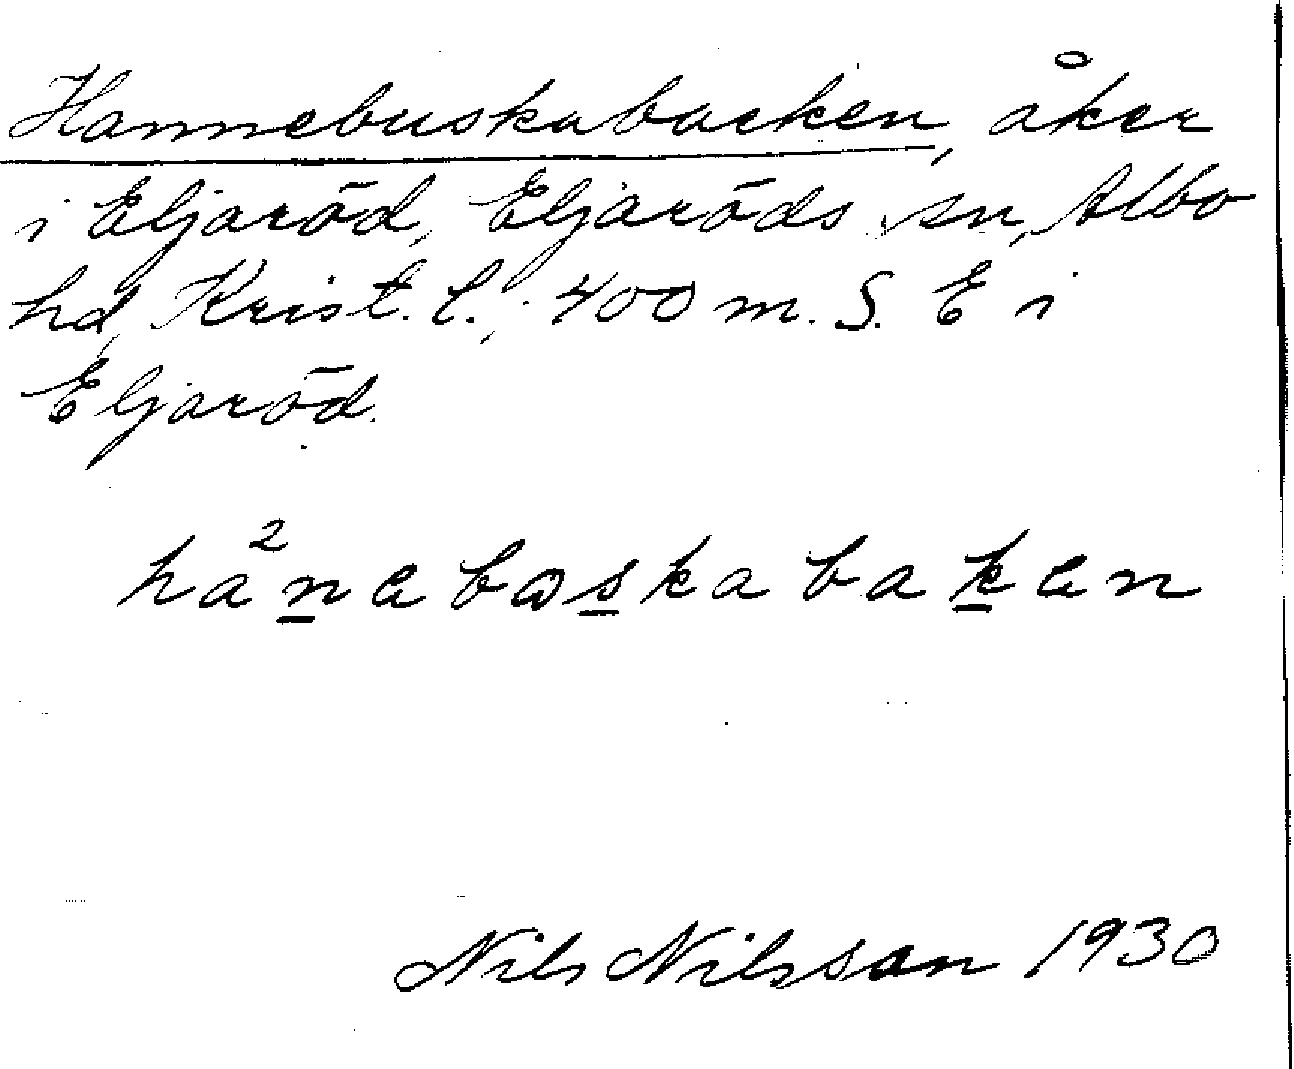 Hannebuskabacken, åker
i Eljaröd, Eljaröds sn, Albo
hd, Krist. l.; 400 m. S. E i
Eljaröd.
ha²nebꙍskabaken
Nils Nilsson 1930